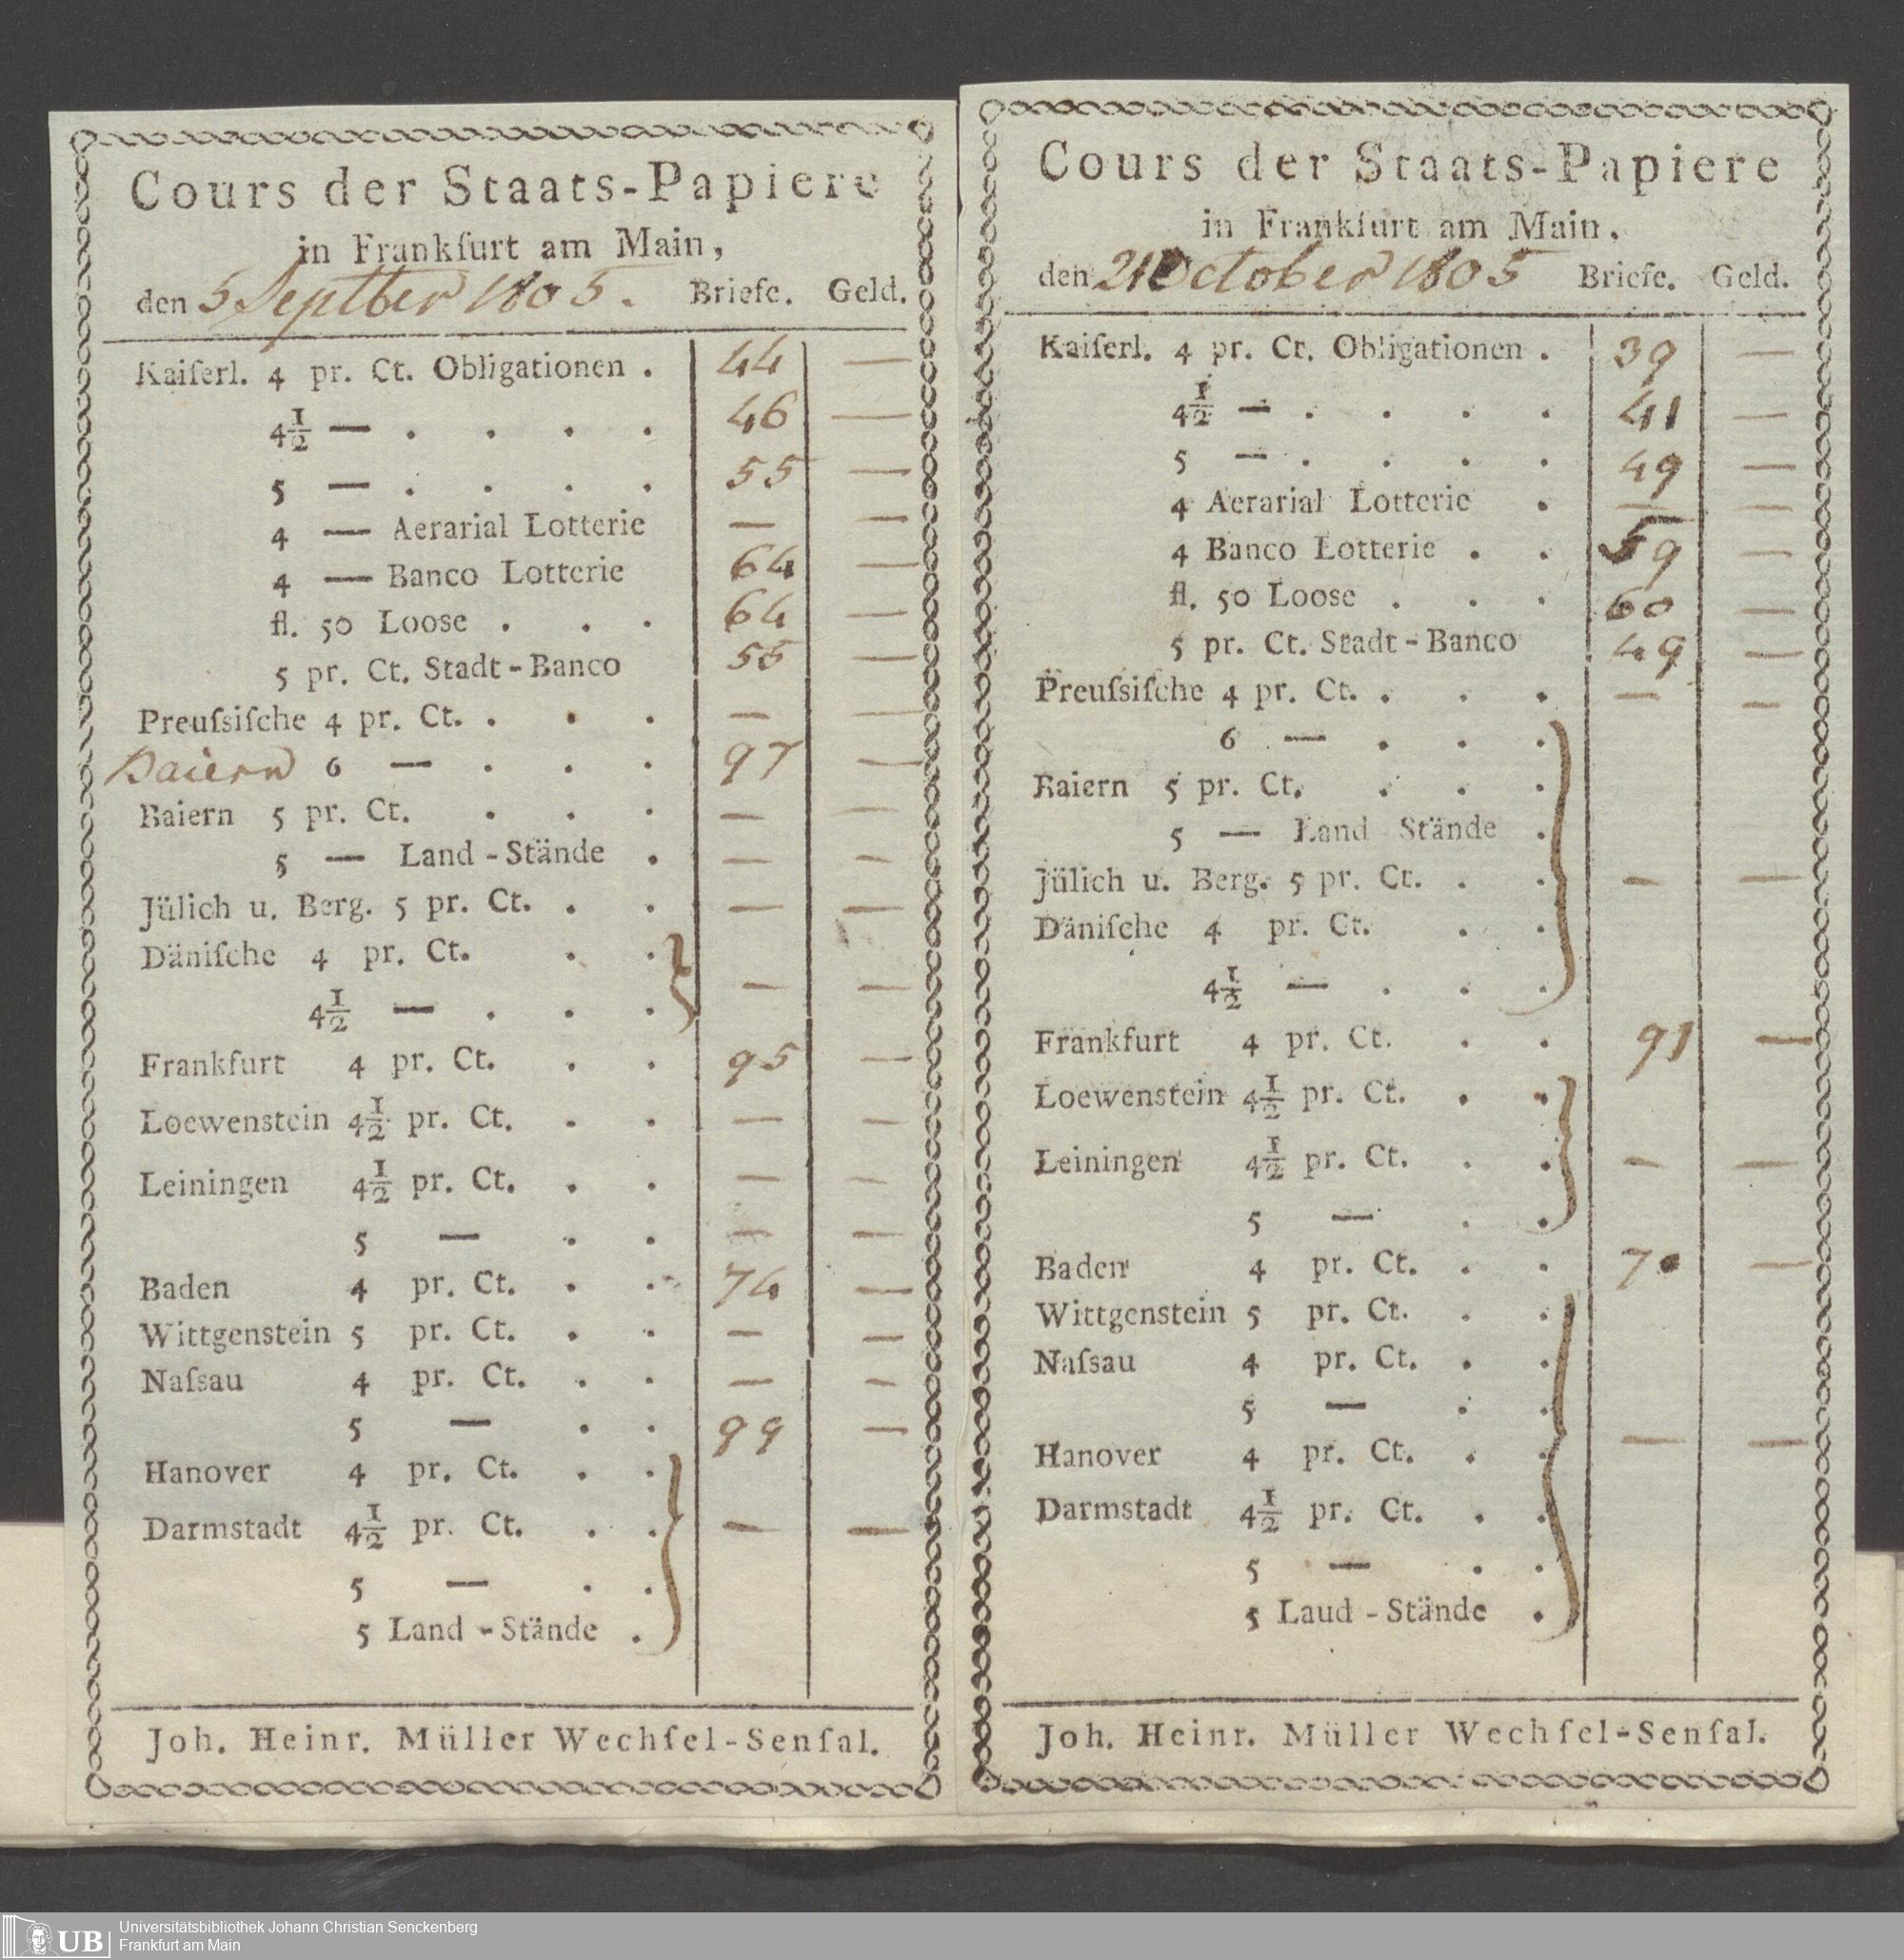 Cours der Staats-Papiere
in Frankfurt am Main,
den 5 Septber 1805. Briefe. Geld.
Kaiſerl. 4 pr. Ct. Obligationen . 44 —
4½ — . . . . 46 —
5 — . . . . 55 —
4 — Aerarial Lotterie — —
4 — Banco Lotterie 64 —
fl. 50 Loose . . . 64 —
5 pr. Ct. Stadt-Banco 55 —
Preuſsiſche 4 pr. Ct. . . . — —
Baiern 6 — . . . 97 —
Baiern 5 pr. Ct. . . . — —
5 — Land-Stände . — —
Jülich u. Berg. 5 pr. Ct. . . — —
Däniſche 4 pr. Ct. . .
4½ — . . . — —
Frankfurt 4 pr. Ct. . . 95 —
Loewenstein 4½ pr. Ct. . . — —
Leiningen 4½ pr. Ct. . . — —
5 — . . — —
Baden 4 pr. Ct. . . 74 —
Wittgenstein 5 pr. Ct. . . — —
Naſsau 4 pr. Ct. . . — —
5 — . . 99 —
Hanover 4 pr. Ct. . .
Darmstadt 4½ pr. Ct. . . — —
5 — . .
5 Land-Stände .
Joh. Heinr. Müller Wechſel-Senſal.
Cours der Staats-Papiere
in Frankfurt am Main,
den October 1805 Briefe. Geld.
Kaiſerl. 4 pr. Ct. Obligationen . 39 —
4½ — . . . . 41 —
5 — . . . . 49 —
4 Aerarial Lotterie . — —
4 Banco Lotterie . . 59 —
fl. 50 Loose . . . 60 —
5 pr. Ct. Stadt-Banco 49 —
Preuſsiſche 4 pr. Ct. . . . — —
6 — . . .
Baiern 5 pr. Ct. . . .
5 — Land Stände .
Jülich u. Berg. 5 pr. Ct. . . — —
Däniſche 4 pr. Ct. . .
4½ — . . .
Frankfurt 4 pr. Ct. . . 91 —
Loewenstein 4½ pr. Ct. . .
Leiningen 4½ pr. Ct. . . — —
5 — . .
Baden 4 pr. Ct. . . 70 —
Wittgenstein 5 pr. Ct. . .
Naſsau 4 pr. Ct. . .
5 — . .
Hanover 4 pr. Ct. . . — —
Darmstadt 4½ pr. Ct. . .
5 — . .
5 Laud-Stände .
Joh. Heinr. Müller Wechſel-Senſal.
UB Universitätsbibliothek Johann Christian Senckenberg
Frankfurt am Main